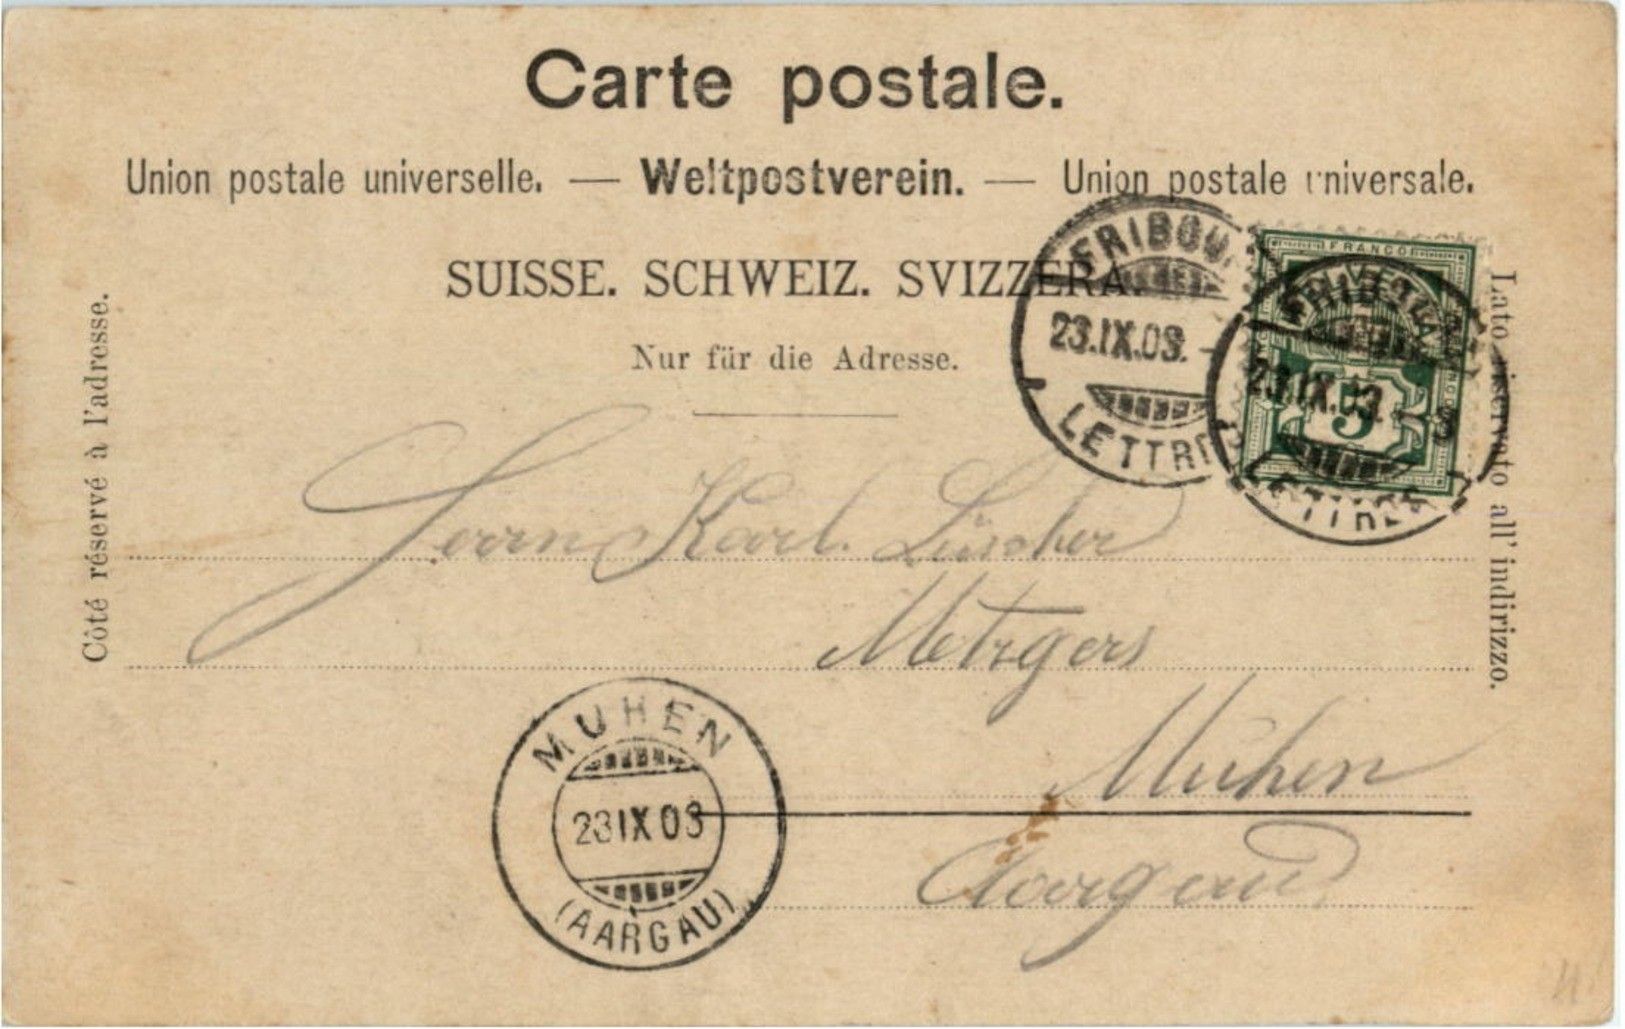 Carte postale.
Union postale universelle. — Weltpostverein. — Union postale universale.
SUISSE. SCHWEIZ. SVIZZERA.
Nur für die Adresse.
Côté réservé à l'adresse.
Lato riservato all' indirizzo.
FRIBOU
23.IX.03.
LETTRE
FRANCO
5
FRIB
23.IX.03.
LETTRES
Herrn Karl. Lüscher
Metzgers
Muhen
Aargau
MUHEN
23 IX 03
(AARGAU)